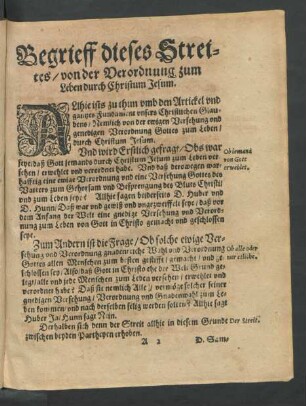 Begrieff dieses Strei-
tes/von der Verordnung zum
Leben durch Christum Jesum.
Allhie ists zu thun vmb den Artickel vnd
gantzes Fundament vnsers Christlichen Glau-
bens/ Nemlich von der ewigen Versehung vnd
gnedigen Verordnung Gottes zum Leben/
durch Christum Jesum.
Vnd wird Erstlich gefragt/ Obs war
seye/ daß Gott jemands durch Christum Jesum zum Leben ver-
sehen/ erwehlet vnd verordnet habe. Vnd daß derowegen war-
hafftig eine ewige Verordnung vnd Versehung Gottes des
Vatters zum Gehorsam vnd Besprengung des Bluts Christi/
vnd zum Leben seye? Allhie sagen beiderseits D. Huber vnd
D. Hunn: Daß war vnd gewiß vnd vngezweiffelt seye/ daß vor
dem Anfang der Welt eine gnedige Versehung vnd Verord-
nung zum Leben von Gott in Christo gemacht vnd geschlossen
seye.
Ob jemand
von Gott
erwehlet.
Zum Andern ist die Frage/ Ob solche ewige Ver-
sehung vnd Verordnung gnadenreiche Wahl vnd Verordnung
Gottes allen Menschen zum besten gestifft/ gemacht/ vnd ge-
schlossen sey/ Also/ daß Gott in Christo ehe der Welt Grund ge-
legt/ alle vnd jede Menschen zum Leben versehen/ erwehlet vnd
verordnet habe? Daß sie nemlich Alle/ vermöge solcher seiner
gnedigen Versehung/ Verordnung vnd Gnadenwahl zum Le-
ben kommen/ vnd nach derselben selig werden sollen? Allhie sagt
Huber Ja/ Hunn sagt Nein.
Ob alle oder
nur etliche.
Derhalben sich denn der Streit allhie in diesem Grundt
zwischen beyden Partheyen erhoben.
Der Streit.
A 2
D. Sam/